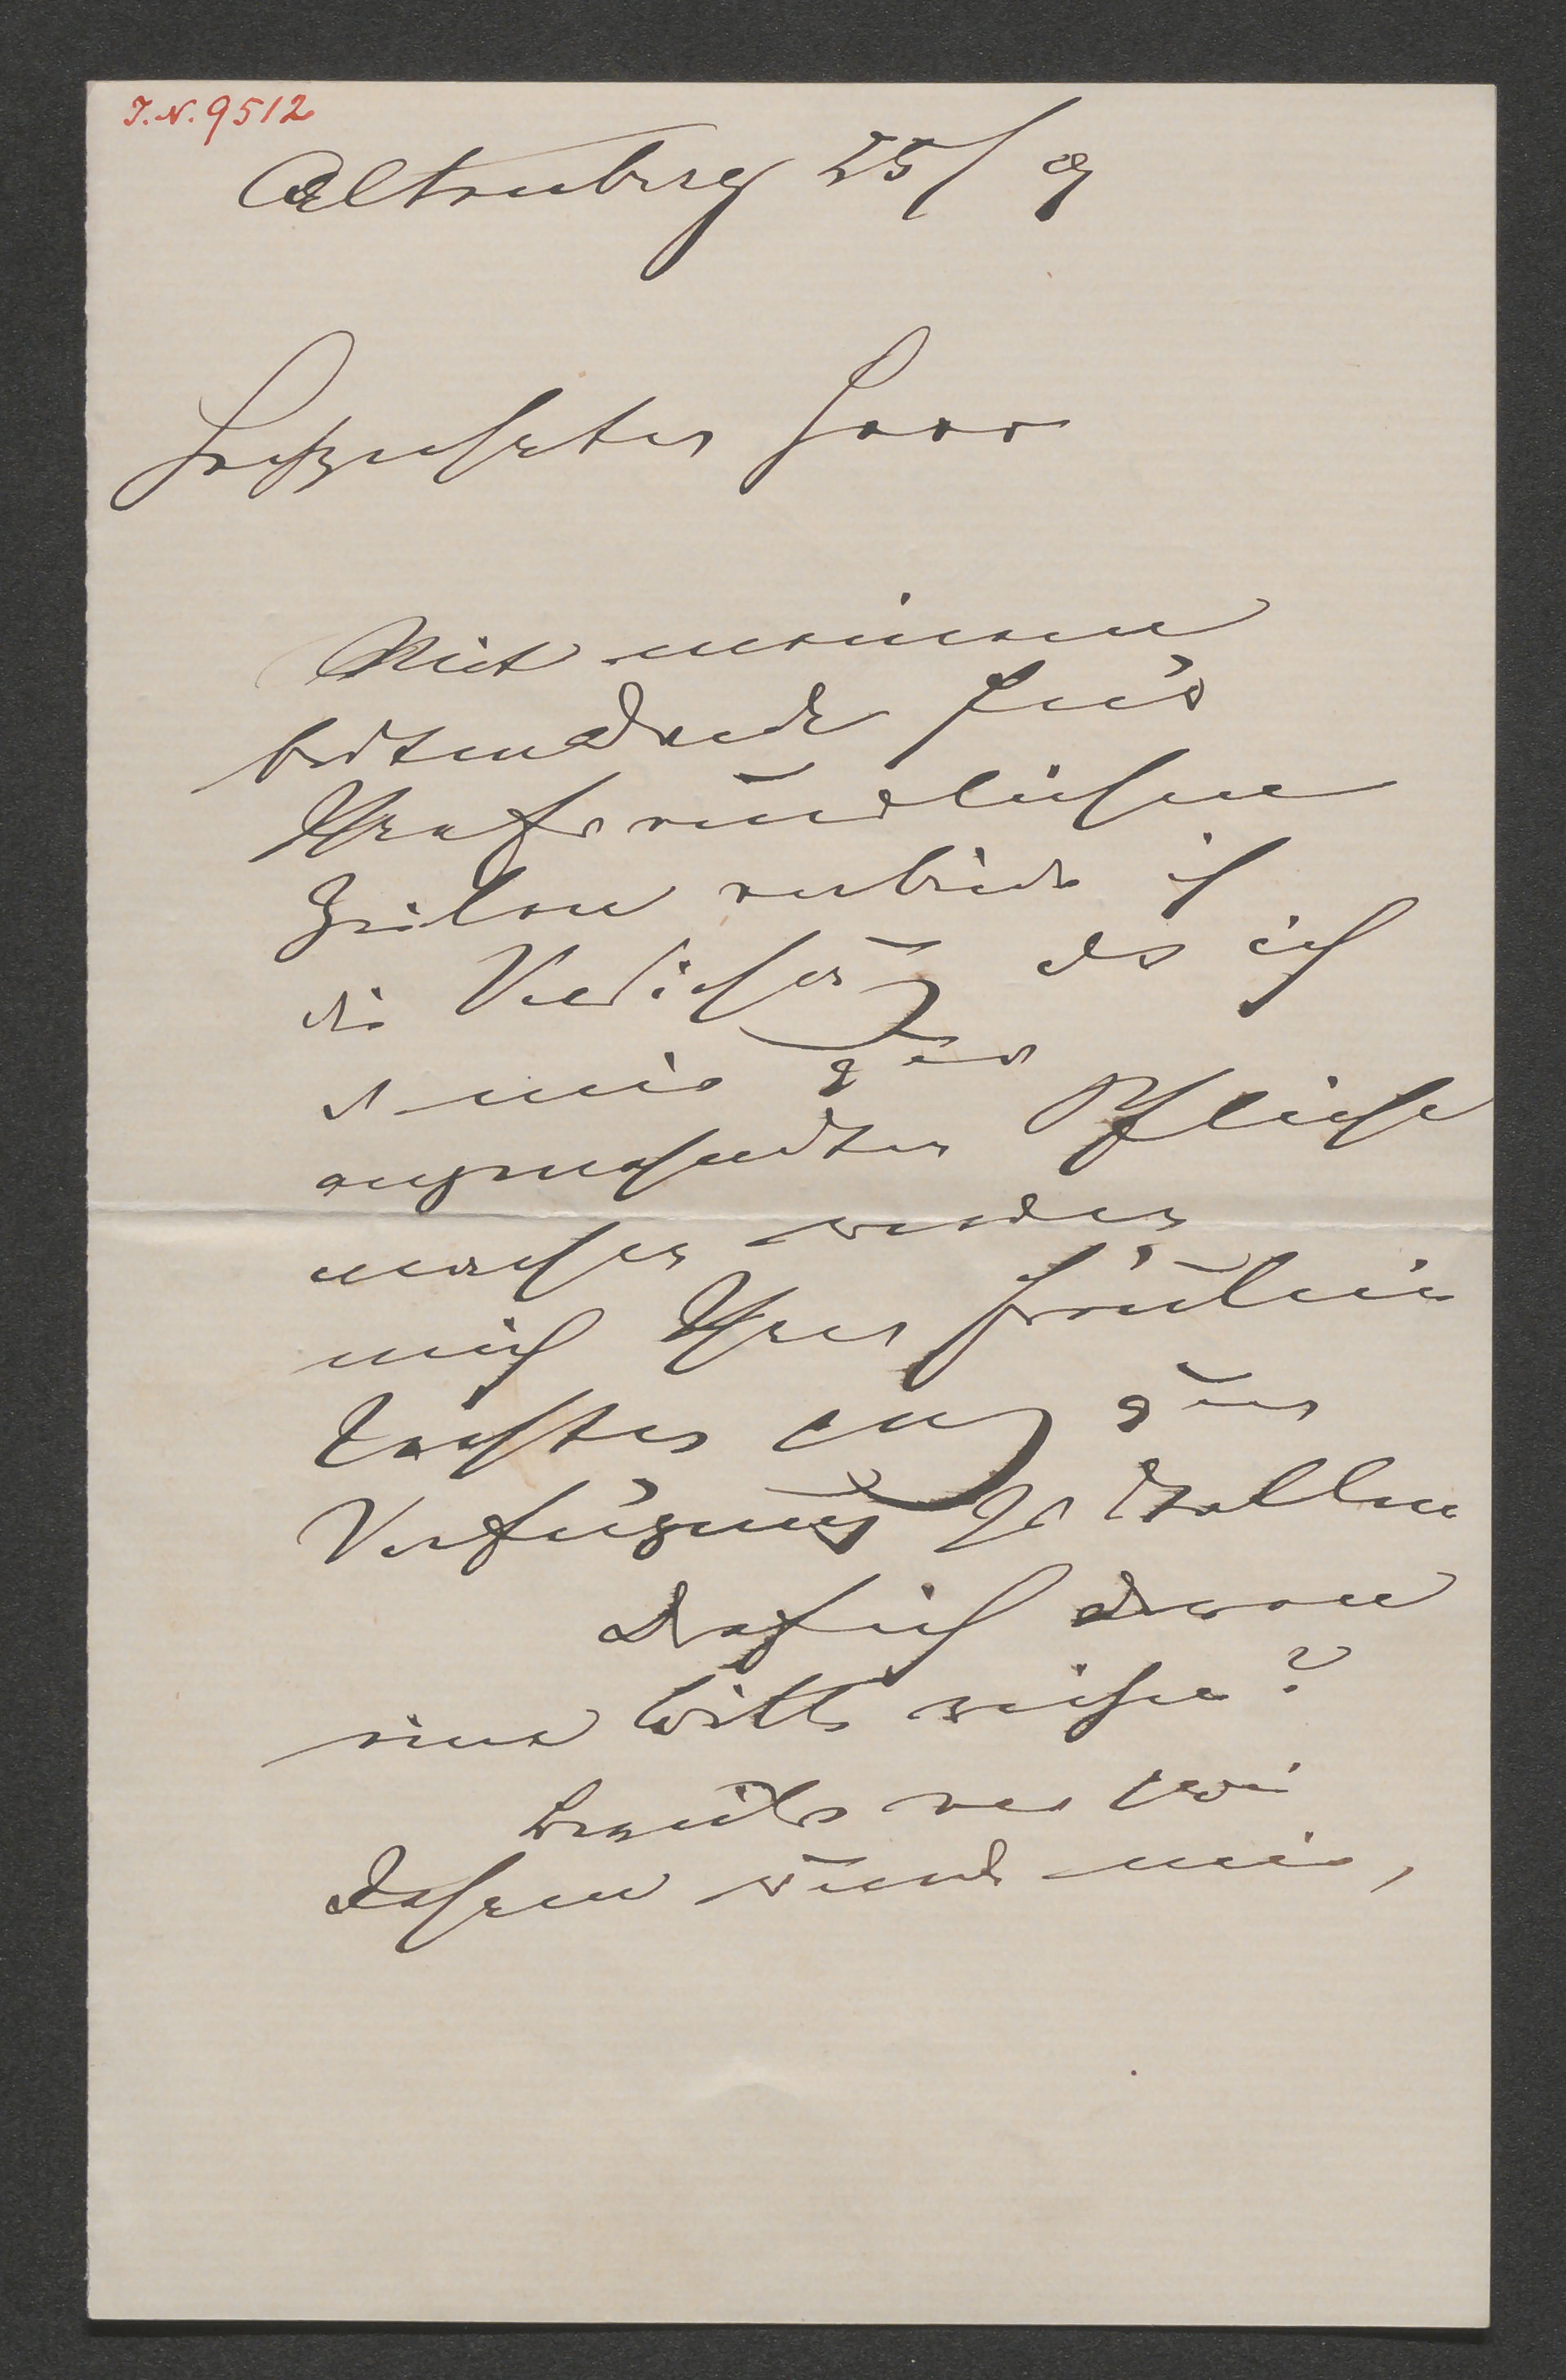 J.N. 9512
Altenberg 25/9
Hochgeehrter Herr
Mit meinem
bestem Dank für
Ihre freundlichen
Zeilen verbinde ich
die Versicherung das ich
es mir zur
angenehmsten Pflicht
machen werde
mich Ihrer Fräulein
Tochter ganz zur
Verfügung zu stellen
Darf ich
eine Bitte
Bereits vor zwei
Jahren wurde mir,